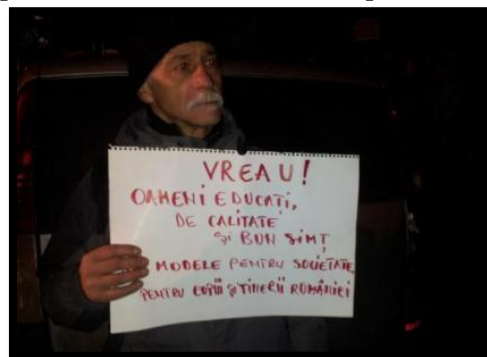 VREAU!
OAMENI EDUCAȚI,
DE CALITATE
și BUN SIMȚ
MODELE PENTRU SOCIETATE,
PENTRU COPIII și TINERII ROMÂNIEI